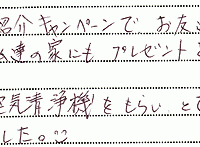 紹介キャンペーンでお友
友達の家にもプレゼント
空気清浄機をもらい、と
した。